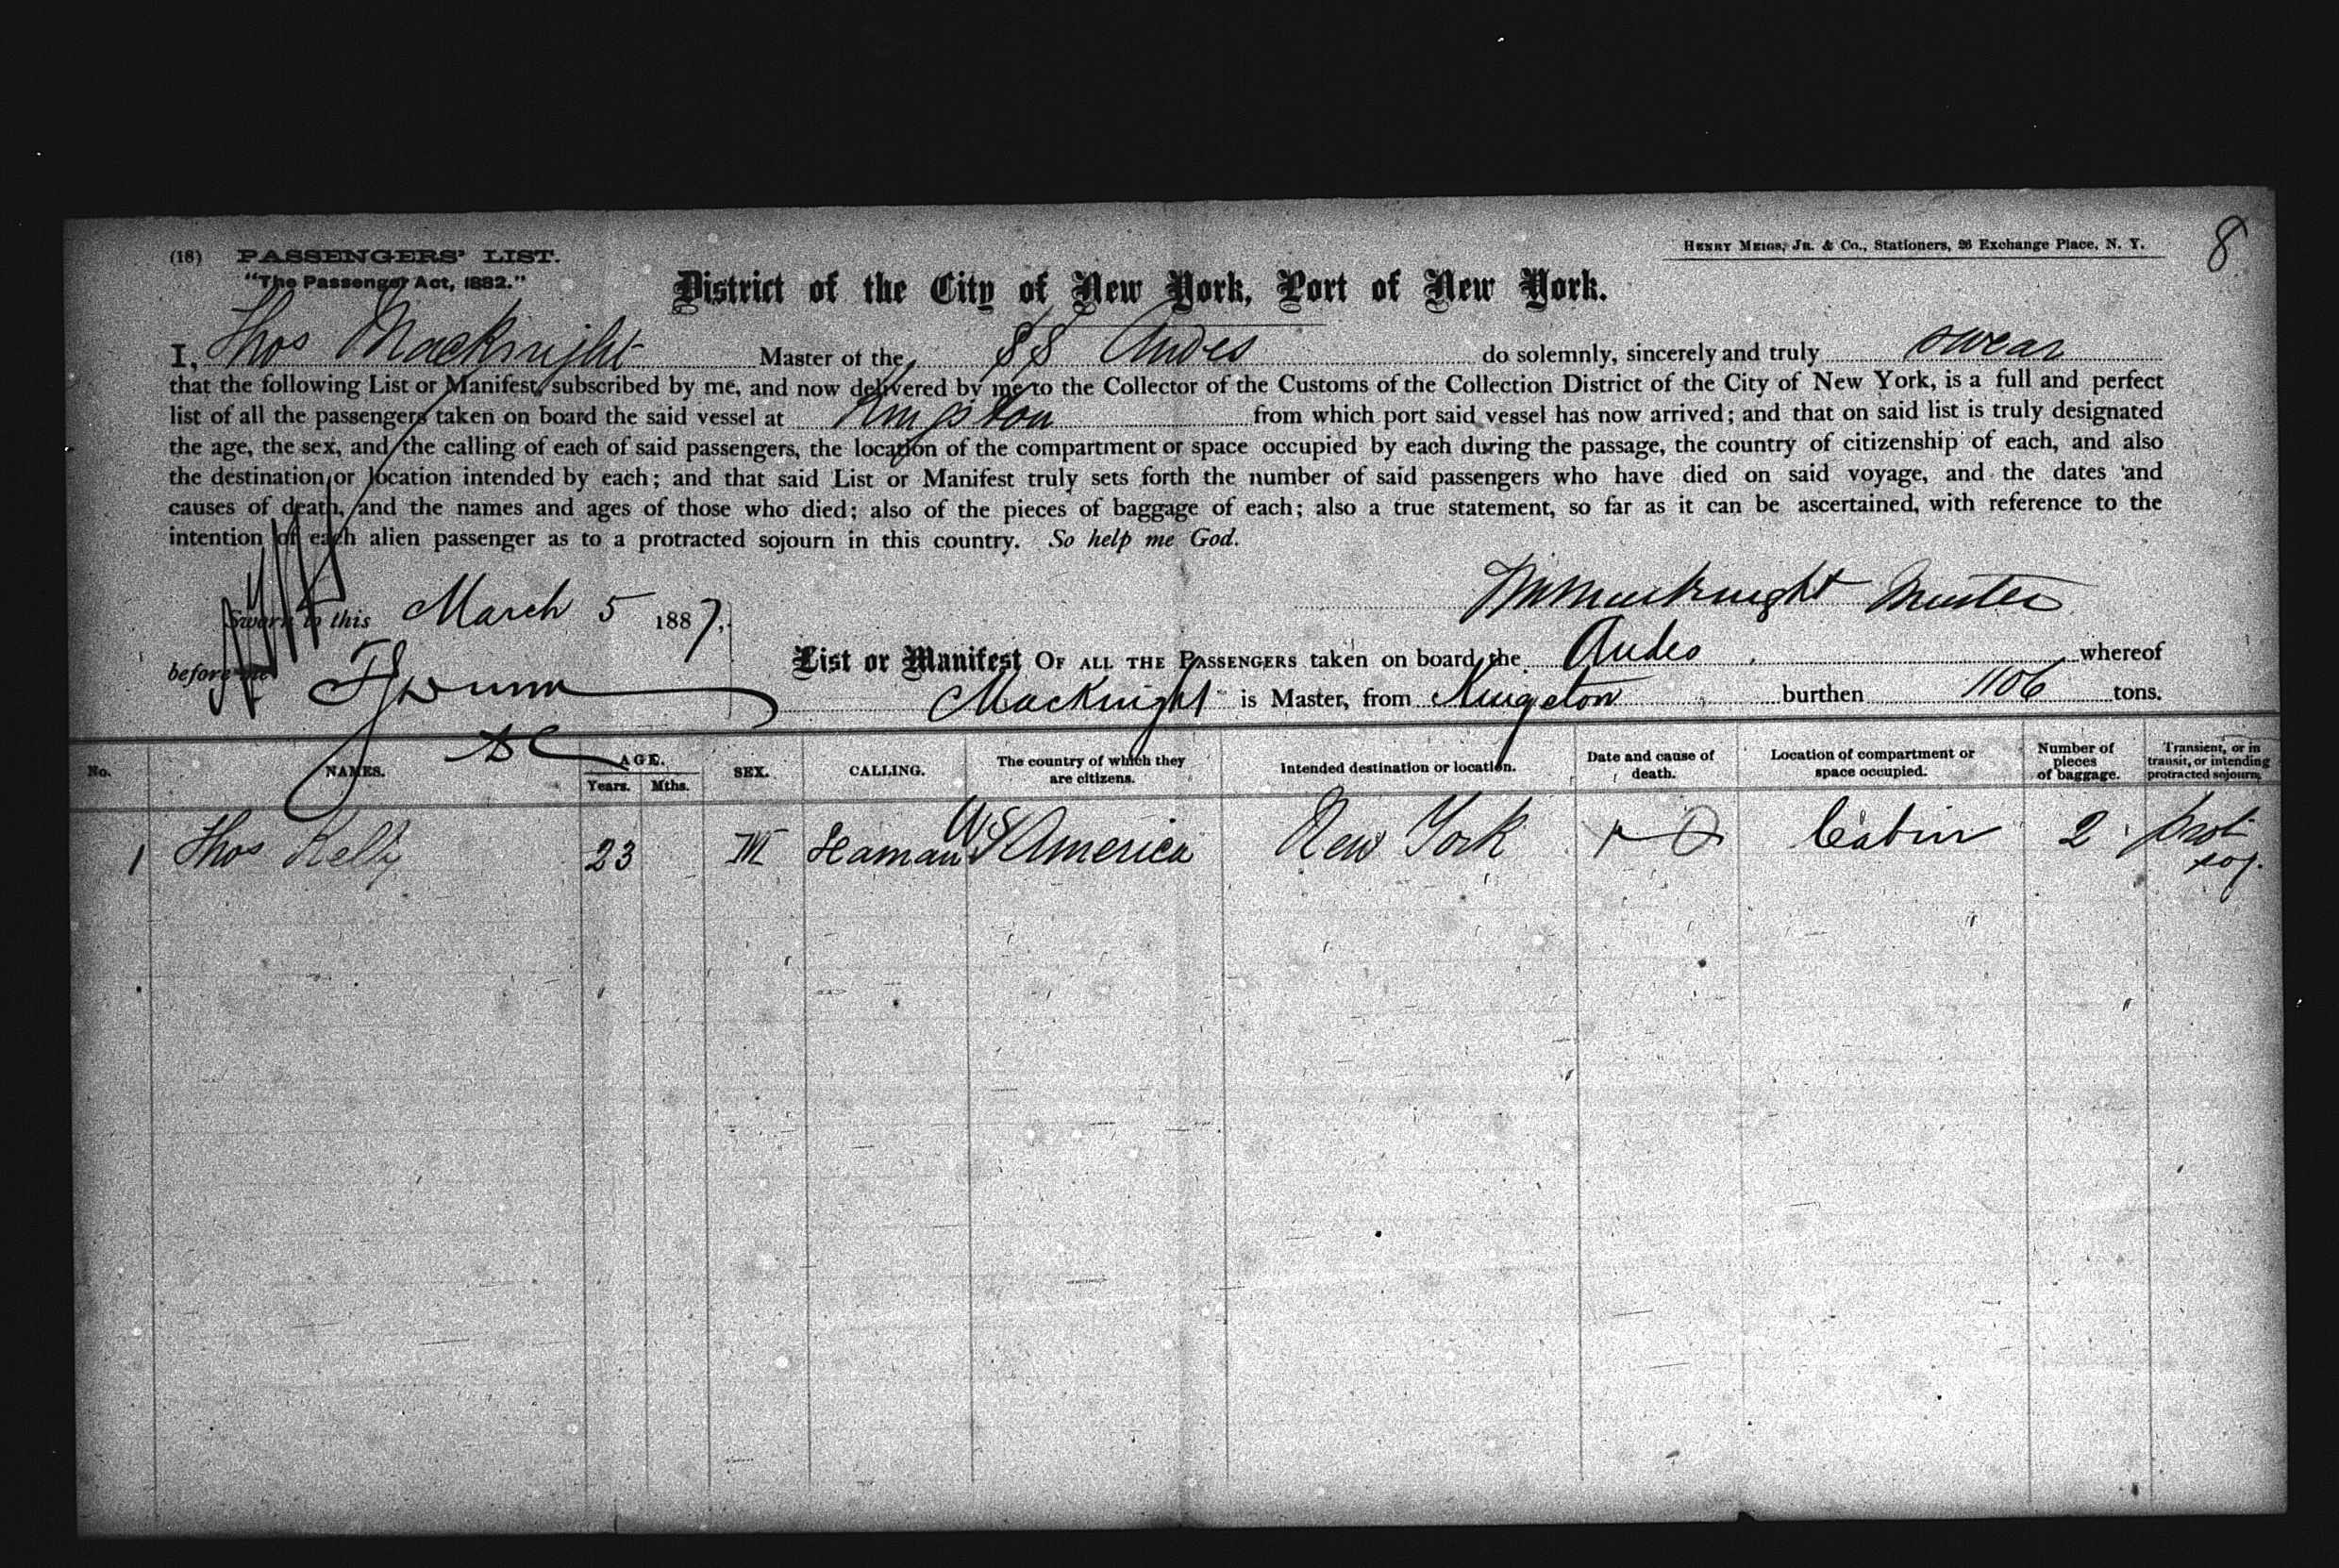 (18) PASSENGERS' LIST.
HENRY MEIGS, JR. & CO., Stationers, 26 Exchange Place, N. Y.
8
"The Passenger Act, 1882."
District of the City of New York, Port of New York.
I, Thos Macknight Master of the SS Andes do solemnly, sincerely and truly swear
that the following List or Manifest, subscribed by me, and now delivered by me to the Collector of the Customs of the Collection District of the City of New York, is a full and perfect
list of all the passengers taken on board the said vessel at Kingston from which port said vessel has now arrived; and that on said list is truly designated
the age, the sex, and the calling of each of said passengers, the location of the compartment or space occupied by each during the passage, the country of citizenship of each, and also
the destination or location intended by each; and that said List or Manifest truly sets forth the number of said passengers who have died on said voyage, and the dates and
causes of death, and the names and ages of those who died; also of the pieces of baggage of each; also a true statement, so far as it can be ascertained, with reference to the
intention of each alien passenger as to a protracted sojourn in this country. So help me God.
Macknight Master
Sworn to this March 5 1887,
before me
List or Manifest OF ALL THE PASSENGERS taken on board the Andes whereof
Macknight is Master, from Kingston burthen 1106 tons.
No. NAMES. AGE. Years. Mths. SEX. CALLING. The country of which they are citizens. Intended destination or location. Date and cause of death. Location of compartment or space occupied. Number of pieces of baggage. Transient, or in transit, or intending protracted sojourn.
1 Thos Kelly 23 M Seaman US America New York Cabin 2 prot soj.